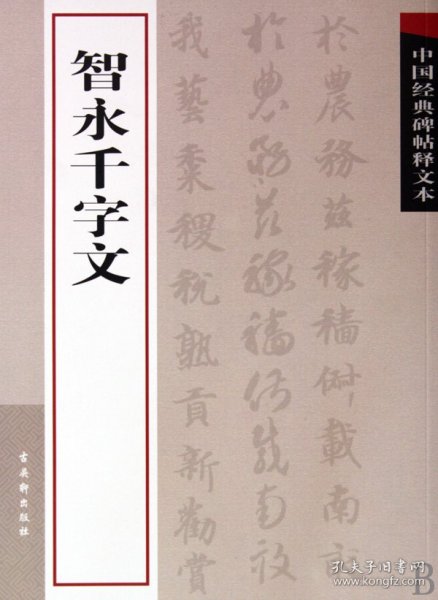 中国经典碑帖释文本
於農務茲稼穡俶載南畝
於農務茲稼穡俶載南畝
我藝黍稷稅熟貢新勸賞
智永千字文
古吴轩出版社
孔夫子旧书网
www.kongfz.com
B